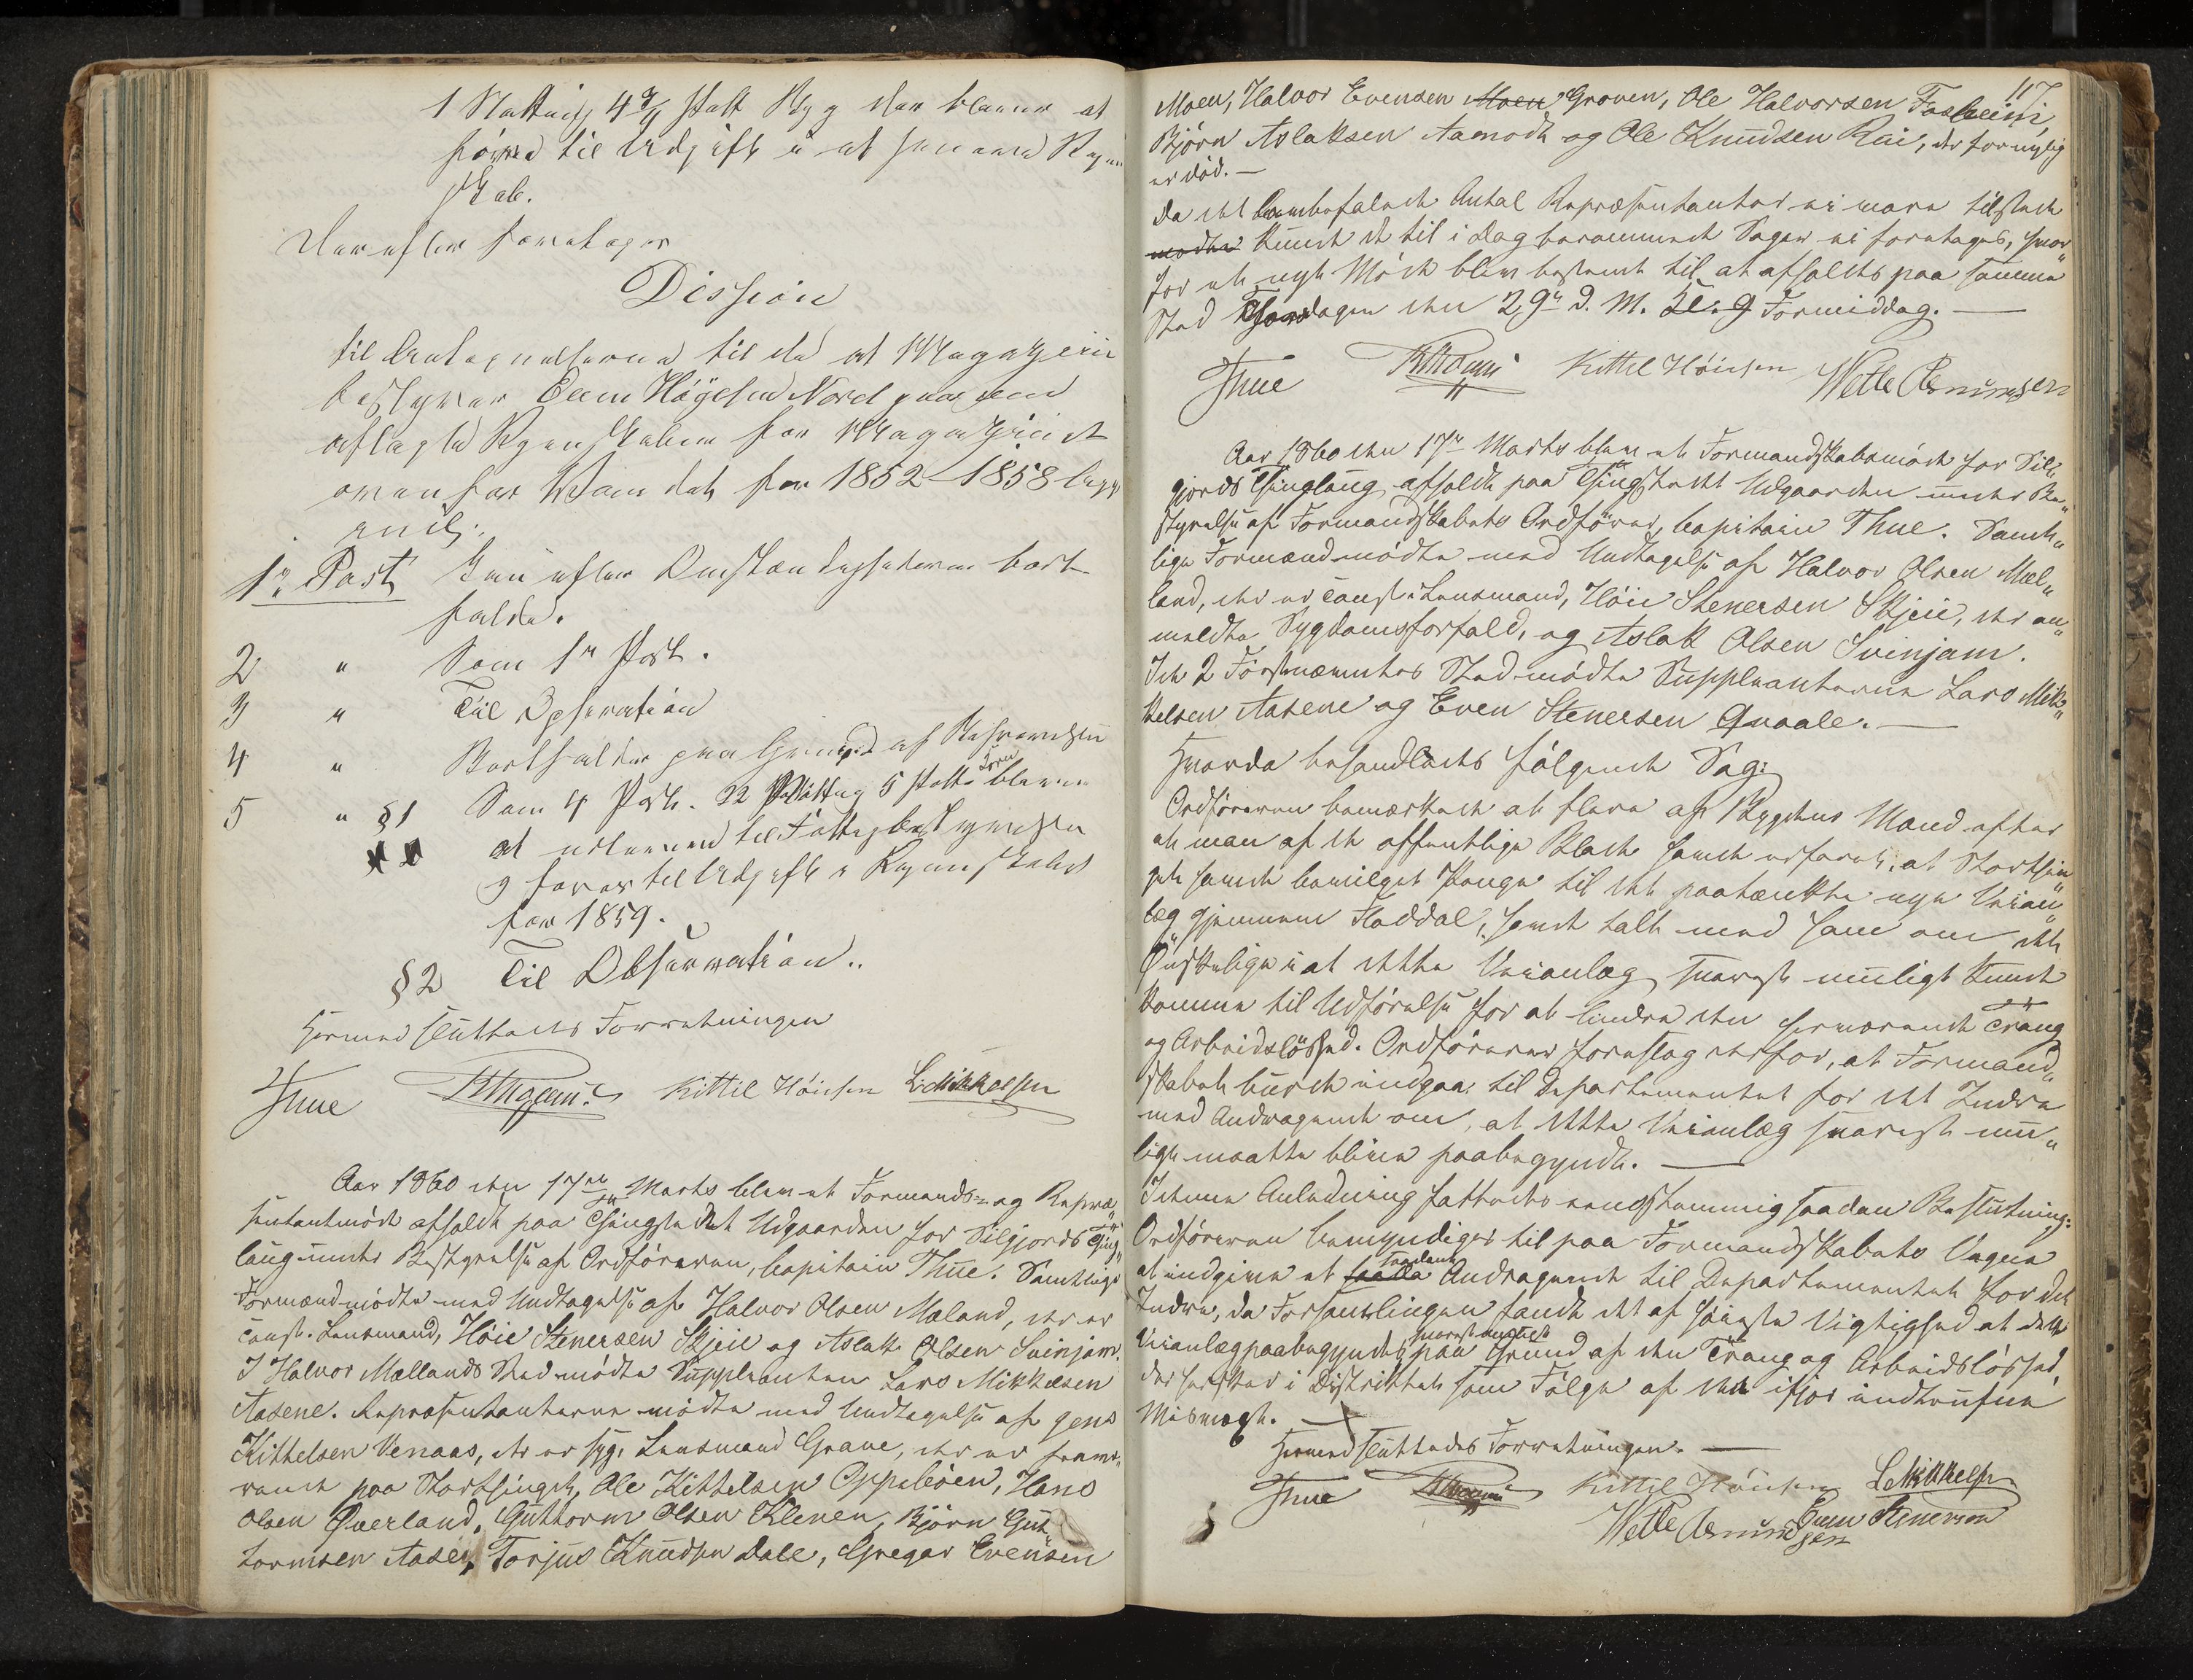 1 Skatting 4 3/4 Skatt Byg der bliver at
föres til Udgift i et senere Regn
skab.
Derefter foretoges
Dission
til Antegnelserne til de at Magazin
bestyrer Even Høyesen Nordgaarden
aflagte Regnskaber for Magazinet
ovenfor Vaindet for 1852-1858 
1ste Post Kan efter Omstændighederne bort-
falde.
2 " Som 1ste Post.
3 " Til Observation
4 " Bortfalder paa Grund af Besvarelsen
5 " §1 Som 4 Post. 22 Skatting 5 Skatt Korn bliver
at udlevere til Fattigbestyrelsen
og föres til Udgift i Regnskabet
for 1859.
§2 Til Observation..
Hermed sluttedes Forretningen
Thue Kittil Höiesen L. Mikkelsen
Aar 1860 den 17de Marts blev et Formands- og Repræ„
sentantmöde afholdt paa Thingstedet Udgaarden for Silgjords Thing„
laug under Bestyrelse af Ordföreren, Capitain Thue. Samtlige
Formænd mödte med Undtagelse af Halvor Olsen Mæland, der er
const. Lensmand, Höie Stenersen Skjeie og Aslak Olsen Svinjam.
I Halvor Mællands Sted mödte Suppleanten Lars Mikkelsen
Aasene. Repræsentanterne mödte med Undtagelse af Jens
Kittelsen Venaas, der er syg, Lensmand Grave, der er fravæ„
rende paa Storthinget, Ole Kittelsen Oppeböen, Hans
Olsen Øverland, Guttorm Olsen Klenen, Björn Gut„
tormsen Aasen, Torjus Knudsen Dale, Gregar Evensen
117
Moen, Halvor Evensen Moen Groven, Ole Halvorsen Fosheim,
Björn Aslaksen Aamodt og Ole Knudsen Rui, der fornylig
er död.—
Da det lovbefalede Antal Repræsentanter ei vare tilstede
mödte kunde de til i Dag berammede Sager ei foretages, hvor„
for et nyt Möde blev bestemt til at afholdes paa samme
Sted Thorsdagen den 29de d. M. Kl. 9 Formiddag.—
Thue Kittil Höiesen Wetle Asmundsen
Aar 1860 den 17de Marts blev et Formandskabsmöde for Sil„
gjords Thinglaug afholdt paa Thingstedet Udgaarden under Be„
styrelse af Formandskabets Ordförer, Capitain Thue. Samt„
lige Formænd mödte med Undtagelse af Halvor Olsen Mæl„
land, der er const. Lensmand, Höie Stenersen Skjeie, der an„
meldte Sygdomsforfald, og Aslak Olsen Svinjam.
I de 2 Förstnævntes Sted mödte Suppleanterne Lars Mik„
kelsen Aasene og Even Stenersen Qvaale.—
Hvorda behandledes fölgende Sag:
Ordföreren bemærkede at flere af Bygdens Mænd efter
at man af de offentlige Blade havde erfaret, at Storthin„
get havde bevilget Penge til det paatænkte nye Veian„
læg gjennem Fladdal, havde talt med ham om det
Ønskelige i at dette Veianlæg snarest muligt kunde
komme til Udförelse for at lindre den herværende Trang
og Arbeidslöshed. Ordföreren foreslog derfor, at Formand„
skabet burde indgaa til Departementet for det Indre
med Andragende om, at dette Veianlæg snarest mu„
ligt maatte blive paabegyndt.—
I denne Anledning fattedes eenstemmig saadan Beslutning:
Ordföreren bemyndiges til paa Formandskabets Vegne
at indgive et saada saadant Andragende til Departementet for det
Indre, da Forsamlingen fandt det af höieste Vigtighed at dette
Veianlæg paabegyndes snarest muligt paa Grund af den Trang og Arbeidslöshed,
der hersker i Distriktet som Fölge af den ifjor indtrufne
Misvæxt.—
Hermed sluttedes Forretningen.—
Thue Kittil Höiesen L Mikkelsen
Wetle Asmundsen Even Stenersen